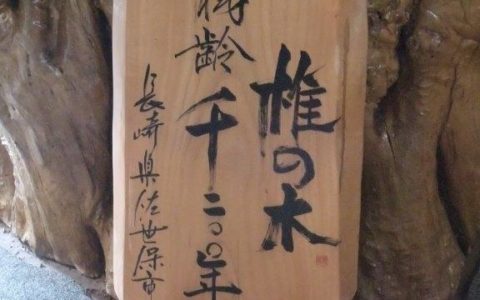 椎の木
樹齢千二〇〇年
長崎県佐世保市